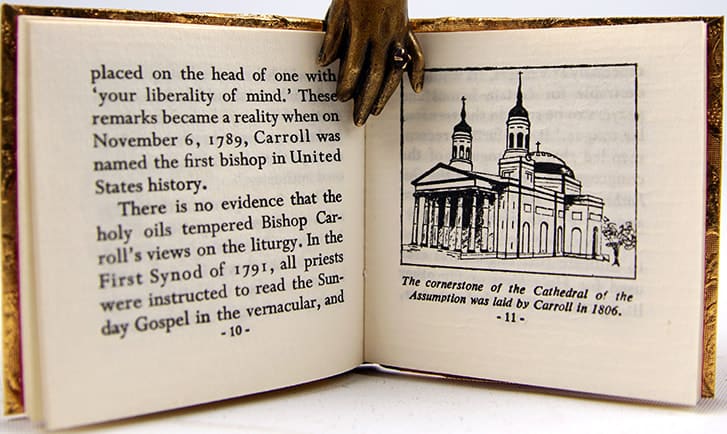 placed on the head of one with
'your liberality of mind.' These
remarks became a reality when on
November 6, 1789, Carroll was
named the first bishop in United
States history.
There is no evidence that the
holy oils tempered Bishop Car-
roll's views on the liturgy. In the
First Synod of 1791, all priests
were instructed to read the Sun-
day Gospel in the vernacular, and
- 10 -
The cornerstone of the Cathedral of the
Assumption was laid by Carroll in 1806.
- 11 -